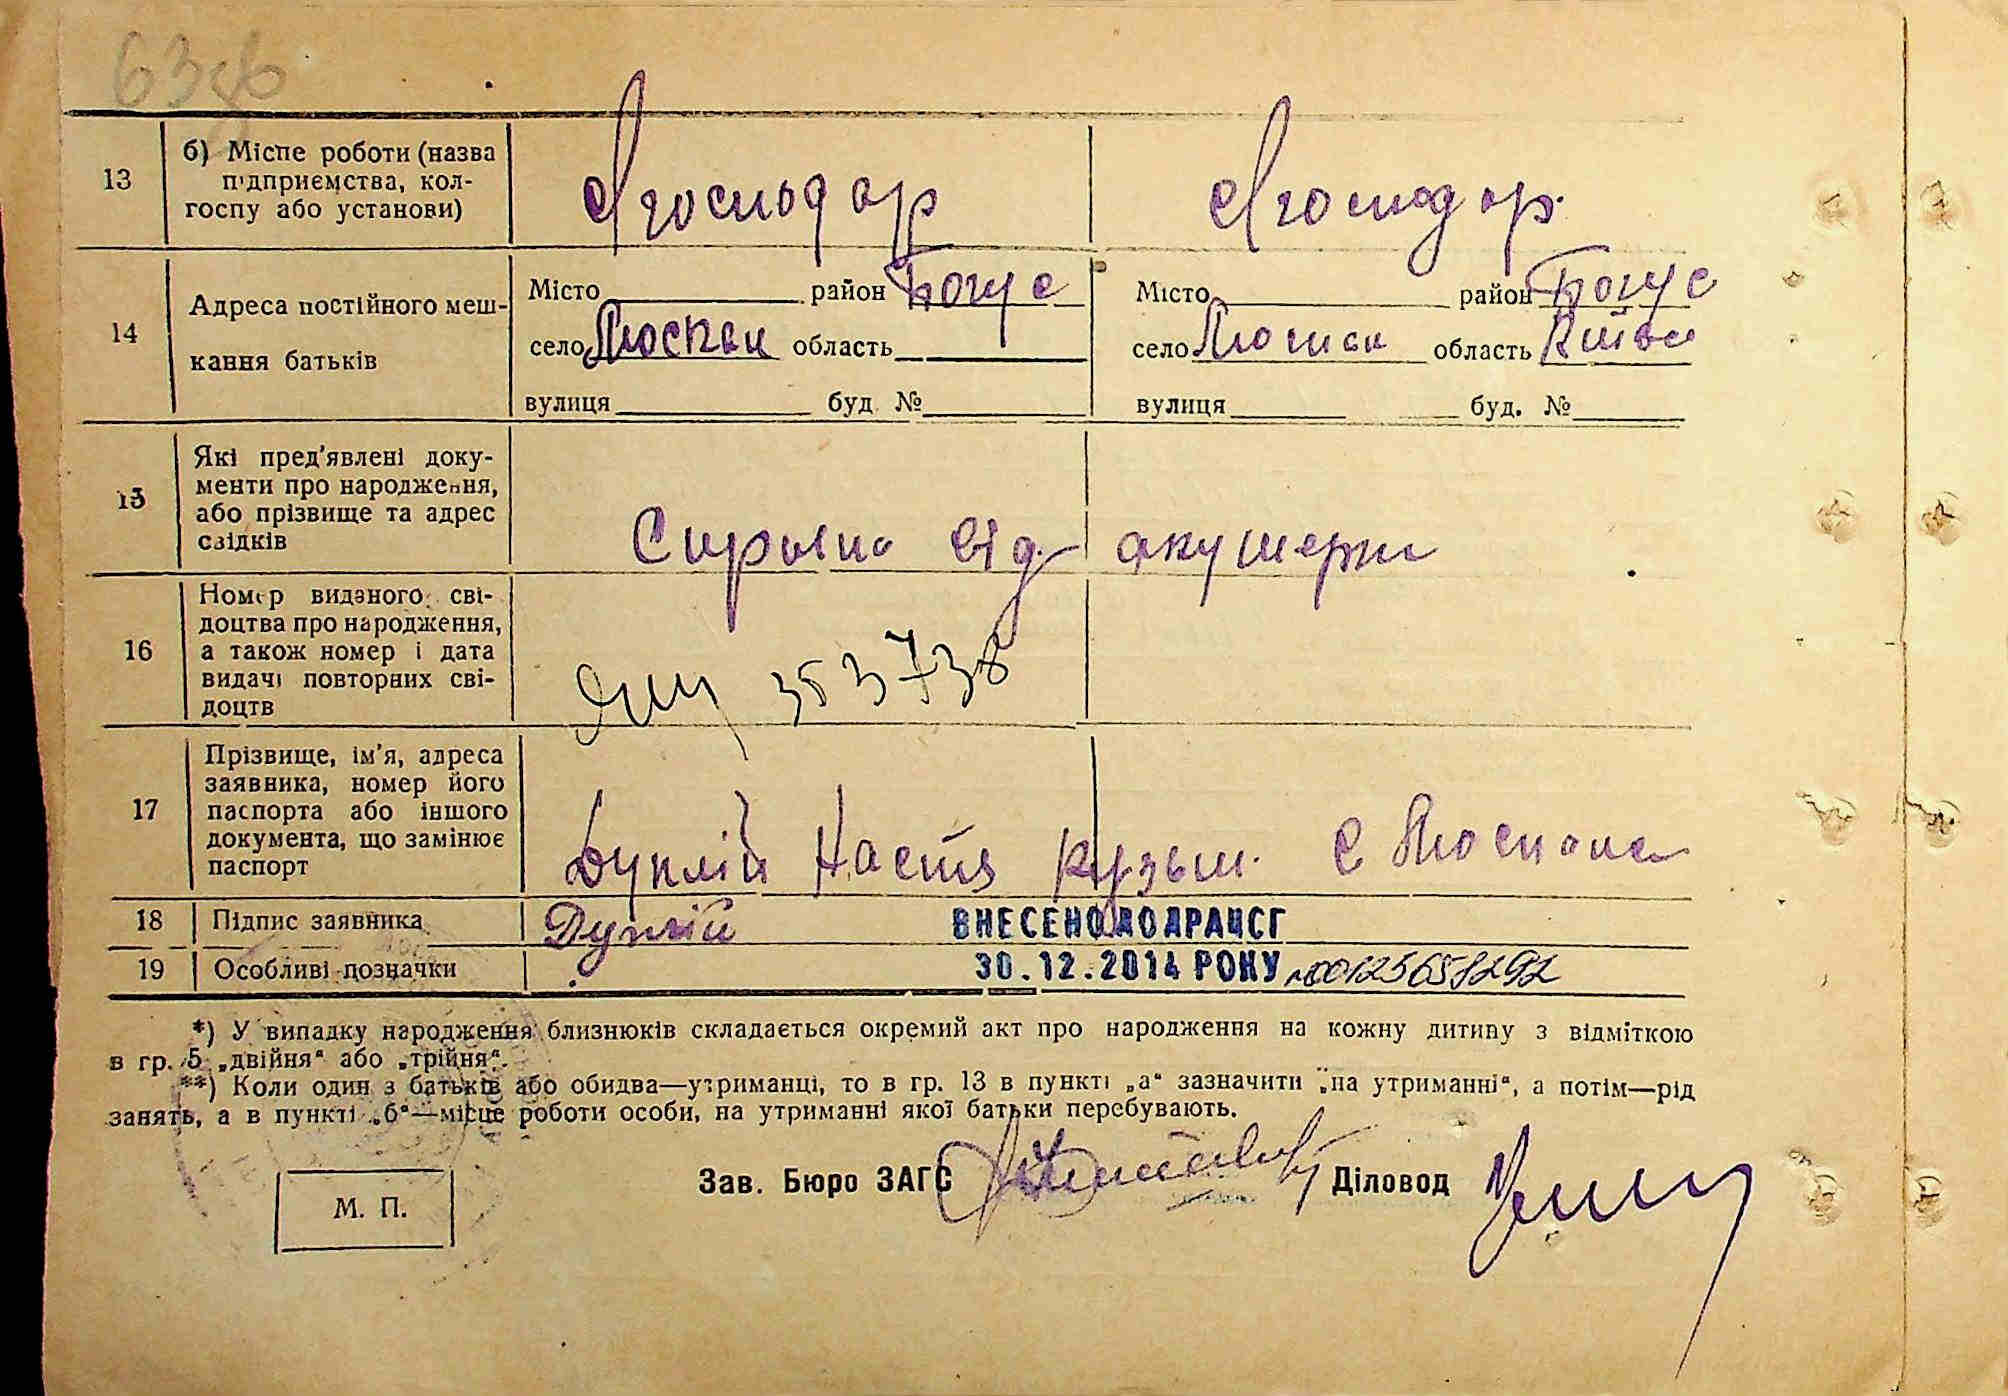 63зв
13 б) Місце роботи (назва підприємства, колгоспу або установи)
14 Адреса постійного мешкання батьків
Місто район Богус
село область
вулиця буд. №
Місто район Богус
село область Київс
вулиця буд. №
15 Які пред'явлені документи про народження, або прізвище та адрес свідків
від акушерки
16 Номер виданого свідоцтва про народження, а також номер і дата видачі повторних свідоцтв
353738
17 Прізвище, ім'я, адреса заявника, номер його паспорта або іншого документа, що замінює паспорт
Дуплій Настя Кузьм. с
18 Підпис заявника Дуплій
ВНЕСЕНО ДО ДРАЦСГ
19 Особливі дозначки
30.12.2014 РОКУ №00125658292
*) У випадку народження близнюків складається окремий акт про народження на кожну дитину з відміткою
в гр. 5 „двійня“ або „трійня“.
**) Коли один з батьків або обидва—утриманці, то в гр. 13 в пункті „а“ зазначити „на утриманні“, а потім—рід
занять, а в пункті „б“—місце роботи особи, на утриманні якої батьки перебувають.
Зав. Бюро ЗАГС Діловод
М. П.